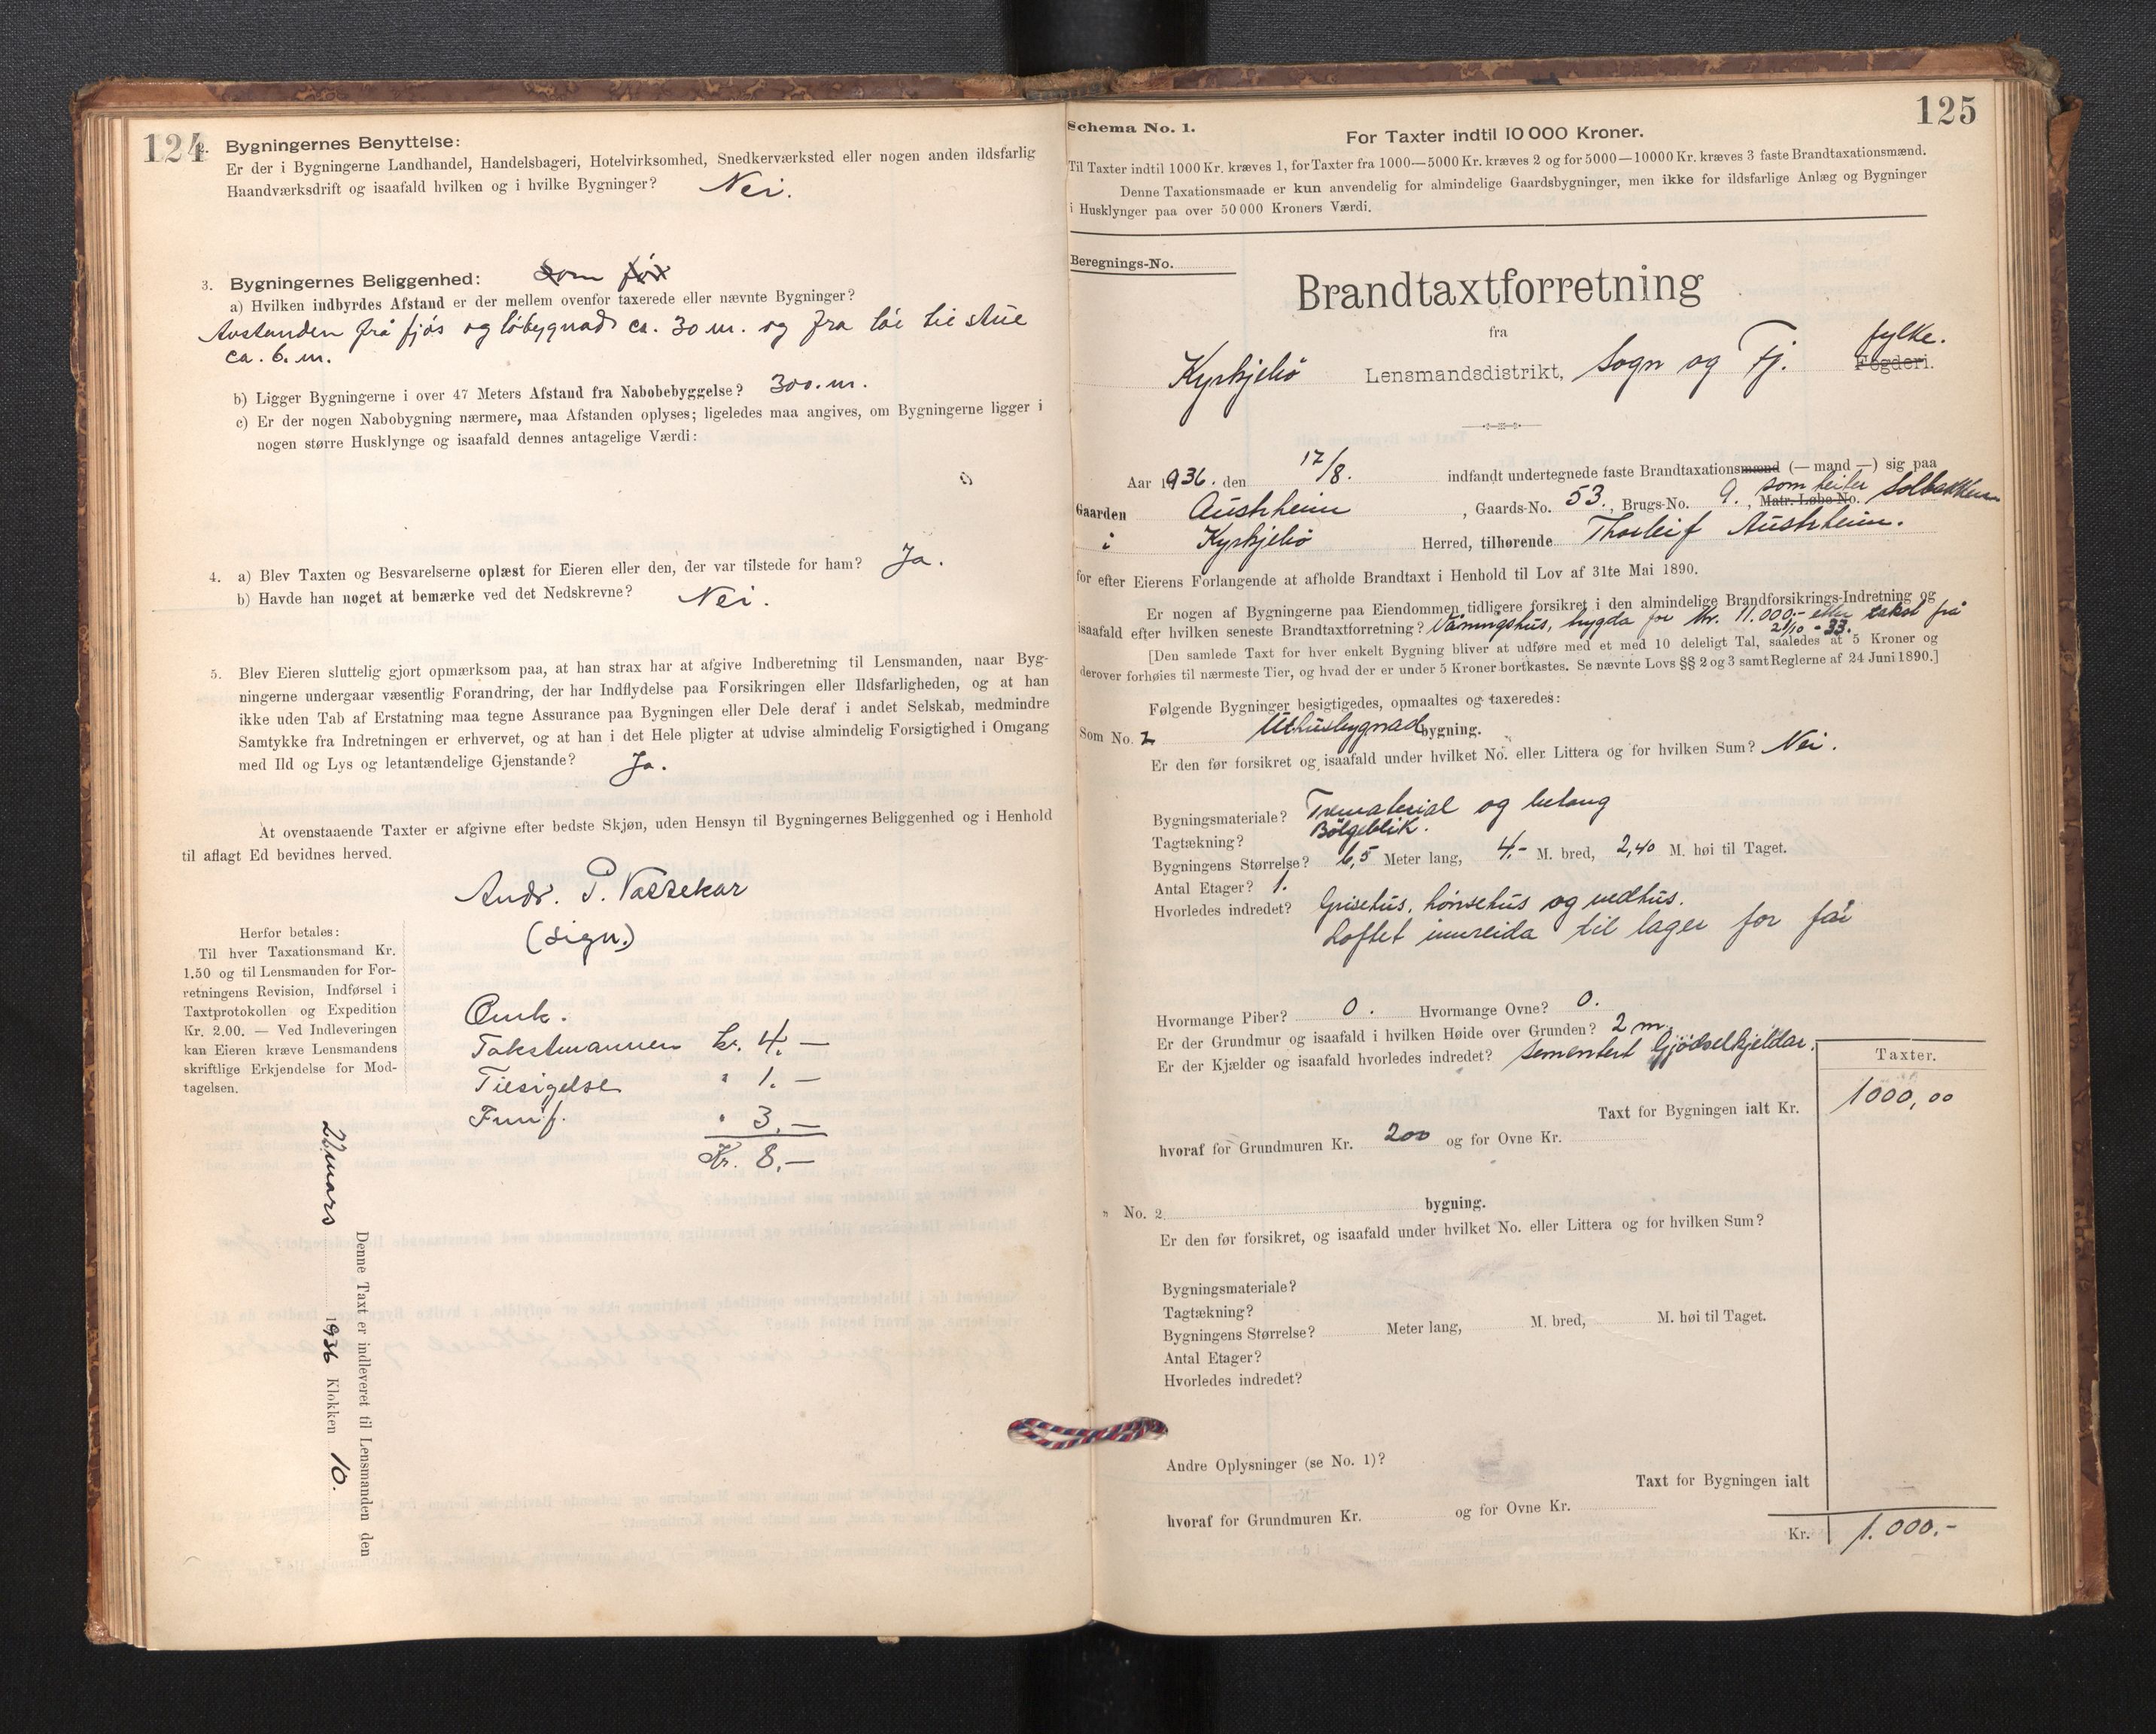 124
2. Bygningernes Benyttelse:
Er der i Bygningerne Landhandel, Handelsbageri, Hotelvirksomhed, Snedkerværksted eller nogen anden ildsfarlig
Haandværksdrift og isaafald hvilken og i hvilke Bygninger? Nei.
3. Bygningernes Beliggenhed: Som før
a) Hvilken indbyrdes Afstand er der mellem ovenfor taxerede eller nævnte Bygninger?
Avstanden frå fjös og löbygnad ca. 30 m. og fra löe til stue
ca. 6. m.
b) Ligger Bygningerne i over 47 Meters Afstand fra Nabobebyggelse? 300. m.
c) Er der nogen Nabobygning nærmere, maa Afstanden oplyses; ligeledes maa angives, om Bygningerne ligger i
nogen større Husklynge og isaafald dennes antagelige Værdi:
4. a) Blev Taxten og Besvarelserne oplæst for Eieren eller den, der var tilstede for ham? Ja.
b) Havde han noget at bemærke ved det Nedskrevne? Nei.
5. Blev Eieren sluttelig gjort opmærksom paa, at han strax har at afgive Indberetning til Lensmanden, naar Byg-
ningerne undergaar væsentlig Forandring, der har Indflydelse paa Forsikringen eller Ildsfarligheden, og at han
ikke uden Tab af Erstatning maa tegne Assurance paa Bygningen eller Dele deraf i andet Selskab, medmindre
Samtykke fra Indretningen er erhvervet, og at han i det Hele pligter at udvise almindelig Forsigtighed i Omgang
med Ild og Lys og letantændelige Gjenstande? Ja.
At ovenstaaende Taxter er afgivne efter bedste Skjøn, uden Hensyn til Bygningernes Beliggenhed og i Henhold
til aflagt Ed bevidnes herved.
Andr. P. Vassekar
(sign.)
Herfor betales:
Til hver Taxationsmand Kr.
1.50 og til Lensmanden for For-
retningens Revision, Indførsel i
Taxtprotokollen og Expedition
Kr. 2.00. — Ved Indleveringen
kan Eieren kræve Lensmandens
skriftlige Erkjendelse for Mod-
tagelsen.
Omk.
Takstmannen kr. 4.—
Tilsigelse " 1.—
" 3.—
Kr. 8.—
Denne Taxt er indleveret til Lensmanden den
mars 1936 Klokken 10.
125
Schema No. 1.
For Taxter indtil 10 000 Kroner.
Til Taxter indtil 1000 Kr. kræves 1, for Taxter fra 1000—5000 Kr. kræves 2 og for 5000—10000 Kr. kræves 3 faste Brandtaxationsmænd.
Denne Taxationsmaade er kun anvendelig for almindelige Gaardsbygninger, men ikke for ildsfarlige Anlæg og Bygninger
i Husklynger paa over 50 000 Kroners Værdi.
Beregnings-No.
Brandtaxtforretning
fra
Kyrkjebö Lensmandsdistrikt, Sogn og Fj. fylke. Fogderi.
Aar 1936. den 17/8. indfandt undertegnede faste Brandtaxationsmænd (— mand —) sig paa
Gaarden Austrheim, Gaards-No. 53., Brugs-No. 9., Matr. Løbe-No. som heiter Solbakken
i Kyrkjebö Herred, tilhørende Thorleif Austrheim.
for efter Eierens Forlangende at afholde Brandtaxt i Henhold til Lov af 31te Mai 1890.
Er nogen af Bygningerne paa Eiendommen tidligere forsikret i den almindelige Brandforsikrings-Indretning og
isaafald efter hvilken seneste Brandtaxtforretning? Våningshus, bygda for kr. 11.000,- etter takst frå
21/10 - 33.
[Den samlede Taxt for hver enkelt Bygning bliver at udføre med et med 10 deleligt Tal, saaledes at 5 Kroner og
derover forhøies til nærmeste Tier, og hvad der er under 5 Kroner bortkastes. Se nævnte Lovs §§ 2 og 3 samt Reglerne af 24 Juni 1890.]
Følgende Bygninger besigtigedes, opmaaltes og taxeredes:
Som No. 2 Uthusbygnad bygning.
Er den før forsikret og isaafald under hvilket No. eller Littera og for hvilken Sum? Nei.
Bygningsmateriale? Trematerial og betong
Tagtækning? Bölgeblik.
Bygningens Størrelse? 6,5 Meter lang, 4.- M. bred, 2,40 M. høi til Taget.
Antal Etager? 1.
Hvorledes indredet? Grisehus, hönsehus og vedhus.
Loftet innreida til lager for får
Hvormange Piber? 0. Hvormange Ovne? 0.
Er der Grundmur og isaafald i hvilken Høide over Grunden? 2 m.
Er der Kjælder og isaafald hvorledes indredet? Sementert Gjödselkjeldar.
Taxter.
Taxt for Bygningen ialt Kr. 1000,00
hvoraf for Grundmuren Kr. 200 og for Ovne Kr.
" No. 2 bygning.
Er den før forsikret, og isaafald under hvilket No. eller Littera og for hvilken Sum?
Bygningsmateriale?
Tagtækning?
Bygningens Størrelse? Meter lang, M. bred, M. høi til Taget.
Antal Etager?
Hvorledes indredet?
Andre Oplysninger (se No. 1)?
Taxt for Bygningen ialt
hvoraf for Grundmuren Kr. og for Ovne Kr.
Kr. 1.000.-